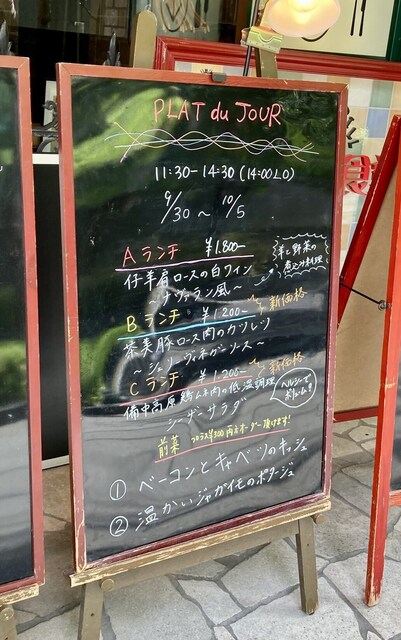 PLAT du JOUR
11:30-14:30 (14:00LO)
9/30 ~ 10/5
Aランチ ¥1.800-
羊と野菜の
煮込み料理
仔羊肩ロースの白ワイン
～ナヴァラン風～
Bランチ ¥1.200- 新価格
茶美豚ロース肉のカツレツ
～シェリーヴィネガーソース～
Cランチ ¥1.200- 新価格
備中高原鶏ムネ肉の低温調理
シーザーサラダ
ヘルシーで
ボリューム!!
前菜 プラス¥300円でオーダー頂けます!
① ベーコンとキャベツのキッシュ
② 温かいジャガイモのポタージュ